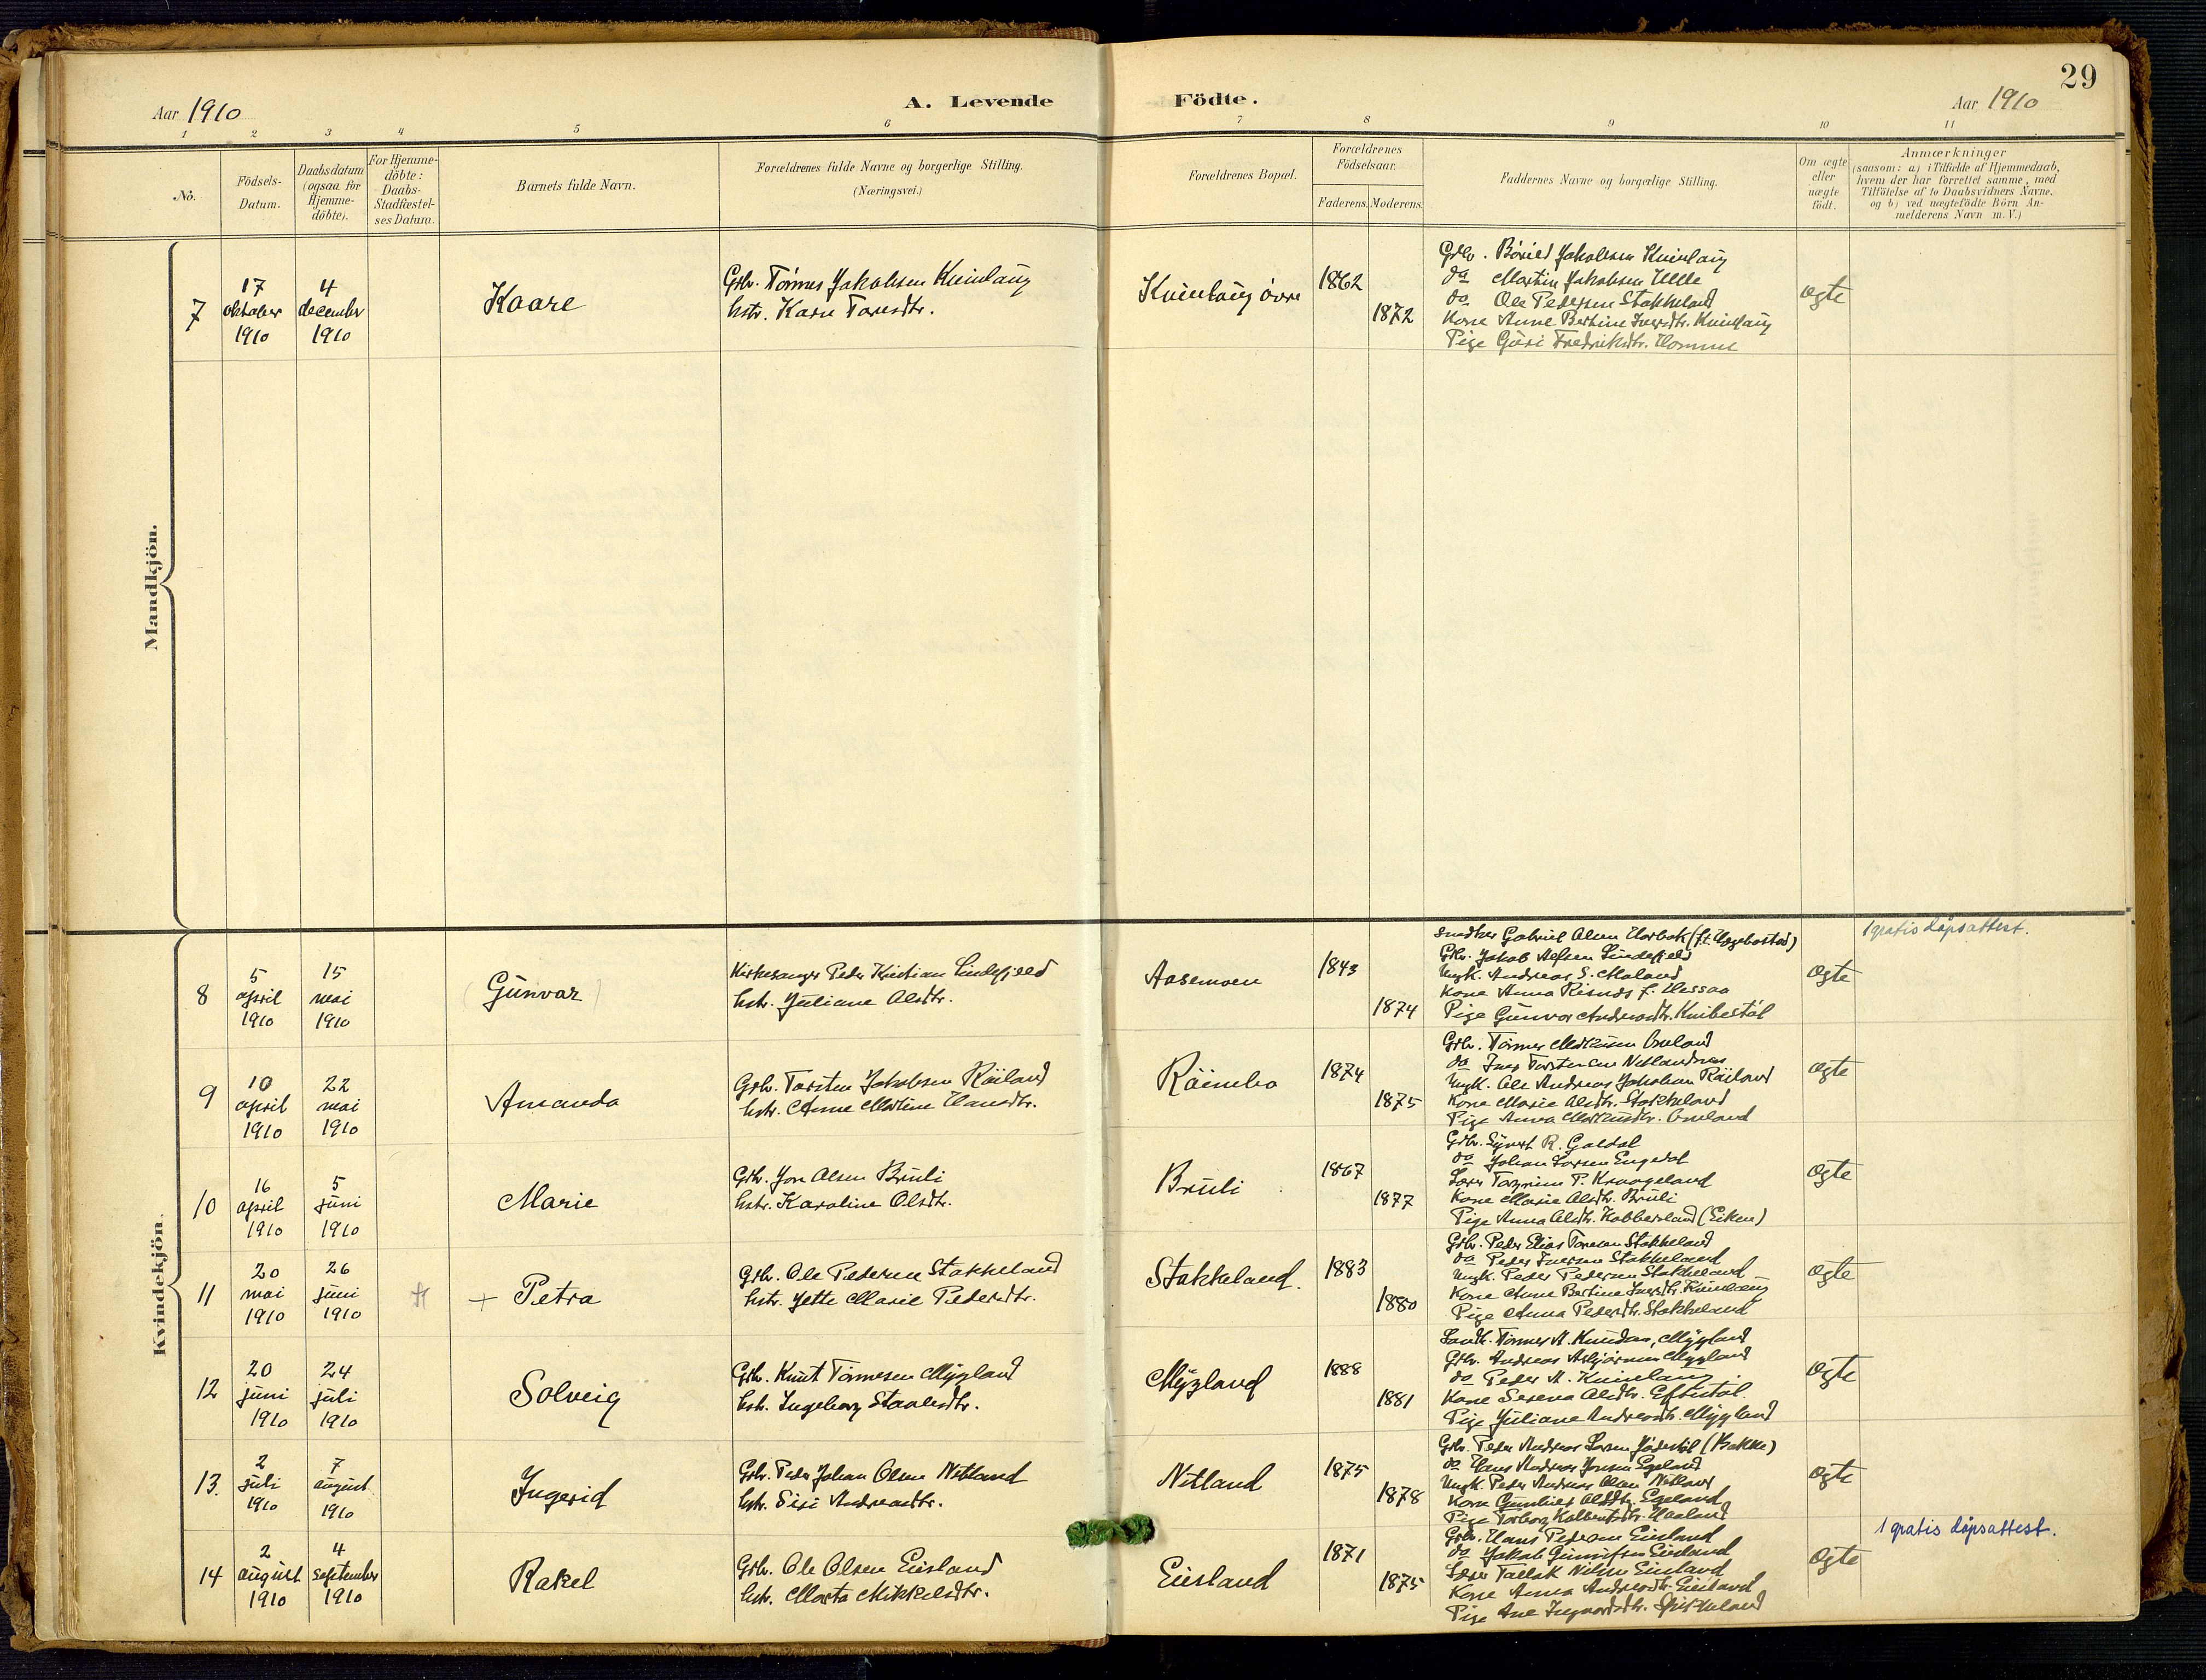 29
Aar 1910
A. Levende Födte.
Aar 1910
1 2 3 4 5 6 7 8 9 10 11
No.
Födsels-Datum.
Daabsdatum (ogsaa for Hjemme-döbte).
For Hjemme-döbte: Daabs-Stadfæstel-ses Datum.
Barnets fulde Navn.
Forældrenes fulde Navne og borgerlige Stilling.
(Næringsvei.)
Forældrenes Bopæl.
Forældrenes Födselsaar.
Faderens. Moderens.
Faddernes Navne og borgerlige Stilling.
Om ægte eller uægte födt.
Anmærkninger
(saasom: a) i Tilfælde af Hjemmedaab,
hvem der har forrettet samme, med
Tilföielse af to Daabsvidners Navne,
og b) ved uægtefödte Börn An-
melderens Navn m. V.)
Mandkjön.
7
17 oktober 1910
4 december 1910
Kaare
Grbr. Tørmes Jakobsen Kvinlaug
hstr. Karen Taresdtr.
Kvinlaug øvre
1862
1872
Grbr. Børild Jakobsen Kvinlaug
do Martin Jakobsen
do Ole Pedersen Stakkeland
Kone Anne Bertine Iversdtr. Kvinlaug
Pige Guri Fredriksdtr. Homme
ægte
Kvindekjön.
8
5 april 1910
15 mai 1910
(Gunvar)
Kirkesanger Peder Kristian Lindefjeld
hstr. Juliane Olsdtr.
Aasemoen
1843
1874
Snedker Gabriel Olsen (f.t. Hægebostad)
Grbr. Jakob Lindefjeld
Ungk. Andreas S. Moland
Kone Anna
Pige Gunvor Andreasdtr.
ægte
1 gratis dåpsattest.
9
10 april 1910
22 mai 1910
Amanda
Grbr. Torsten Jakobsen Røiland
hstr. Anne Martine Hansdtr.
1874
1875
Grbr. Tørmes Omland
do
Ungk. Ole Andreas Jakobsen Røiland
Kone Marie Olsdtr. Stakkeland
Pige Anna Omland
ægte
10
16 april 1910
5 juni 1910
Marie
Grbr. Jon Olsen Bruli
hstr. Karoline Olsdtr.
Bruli
1867
1877
Grbr. Syvert R. Galdal
do Johan Larsen Engedal
Lærer Torgrim P. Kraageland
Kone Marie Olsdtr. Bruli
Pige Anna Olsdtr. (Eiken)
ægte
11
20 mai 1910
26 juni 1910
+ Petra
Grbr. Ole Pedersen Stakkeland
hstr. Jette Marie Pedersdtr.
Stakkeland.
1883
1880
Grbr. Peder Elias Tørresen Stakkeland
do Peder Iversen Stakkeland
Ungk. Peder Pedersen Stakkeland
Kone Anne Bertine Iversdtr. Kvinlaug
Pige Anna Pedersdtr. Stakkeland
ægte
12
20 juni 1910
24 juli 1910
Solveig
Grbr. Knut Tørmesen Mygland
hstr. Ingeborg Staalesdtr.
Mygland
1888
1881
Tørmes A. Knudsen, Mygland
Grbr. Andreas Asbjørnsen Mygland
do Peder A. Kvinlaug
Kone Serena Olsdtr. Eftestøl.
Pige Juliane Andreasdtr. Mygland
ægte
13.
2 juli 1910
7 august 1910
Ingerid
Grbr. Peder Johan Olsen Netland
hstr. Siri Andreasdtr.
Netland
1875
1878
Grbr. Peder Andreas Larsen (Bakke)
do Hans Andreas Jonsen Egeland
Ungk. Peder Andreas Olsen Netland
Kone Gunhild Olsdtr. Egeland
Pige Torborg Haaland
ægte
14
2 august 1910
4 september 1910
Rakel
Grbr. Ole Olsen Eiesland
hstr. Marta Mikkelsdtr.
Eiesland
1871
1875
Grbr. Hans Pedersen Eiesland
do Jakob Eiesland
Lærer Tallak Nilsen Eiesland
Kone Anna Andreasdtr. Eiesland
Pige Ane
ægte
1 gratis dåpsattest.